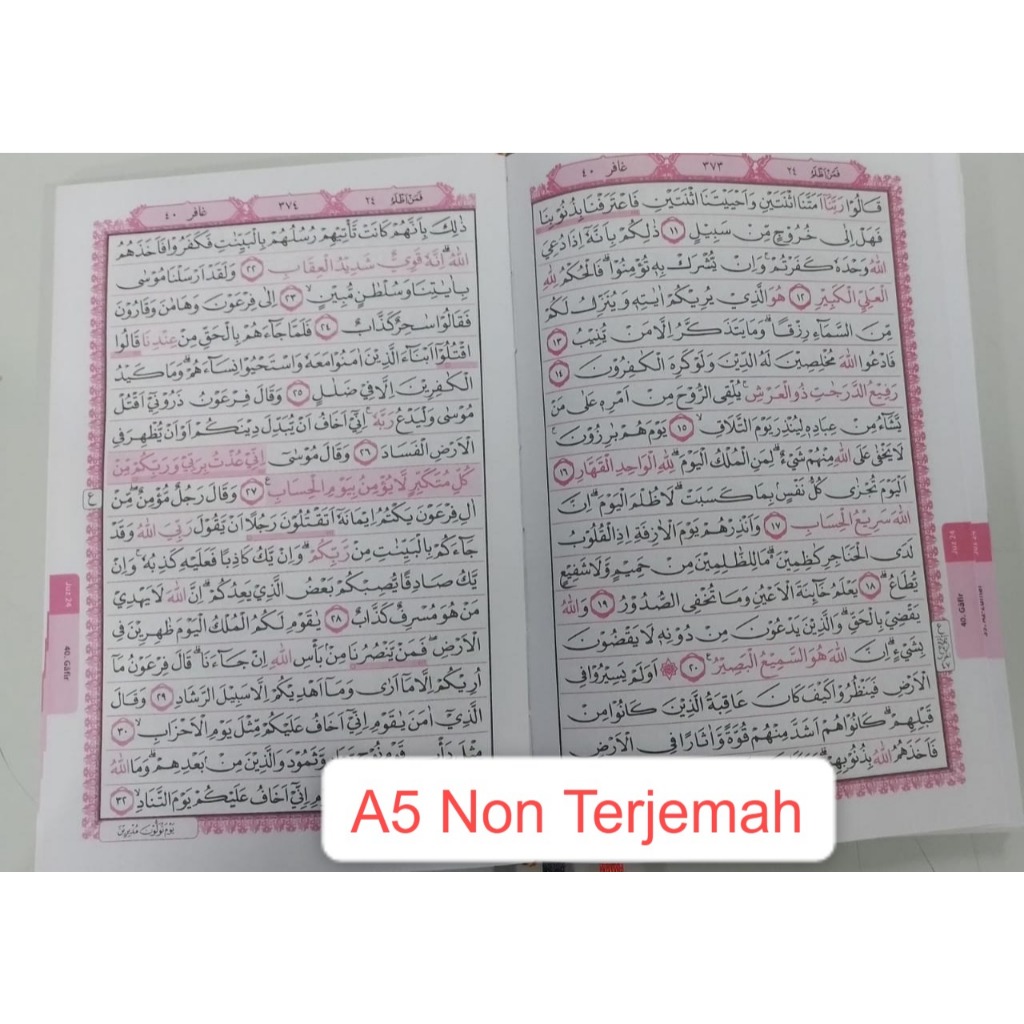 فَمَنْ اَظْلَمُ ٢٤
٣٧٣
غافر ٤٠
قَالُوْا رَبَّنَآ اَمَتَّنَا اثْنَتَيْنِ وَاَحْيَيْتَنَا اثْنَتَيْنِ فَاعْتَرَفْنَا بِذُنُوْبِنَا
فَهَلْ اِلٰى خُرُوْجٍ مِّنْ سَبِيْلٍ ١١ ذٰلِكُمْ بِاَنَّهٗٓ اِذَا دُعِيَ
اللّٰهُ وَحْدَهٗ كَفَرْتُمْ ۚ وَاِنْ يُّشْرَكْ بِهٖ تُؤْمِنُوْا ۗ فَالْحُكْمُ لِلّٰهِ
الْعَلِيِّ الْكَبِيْرِ ١٢ هُوَ الَّذِيْ يُرِيْكُمْ اٰيٰتِهٖ وَيُنَزِّلُ لَكُمْ
مِّنَ السَّمَاۤءِ رِزْقًا ۗ وَمَا يَتَذَكَّرُ اِلَّا مَنْ يُّنِيْبُ ١٣
فَادْعُوا اللّٰهَ مُخْلِصِيْنَ لَهُ الدِّيْنَ وَلَوْ كَرِهَ الْكٰفِرُوْنَ ١٤
رَفِيْعُ الدَّرَجٰتِ ذُو الْعَرْشِ ۚ يُلْقِى الرُّوْحَ مِنْ اَمْرِهٖ عَلٰى مَنْ
يَّشَاۤءُ مِنْ عِبَادِهٖ لِيُنْذِرَ يَوْمَ التَّلَاقِ ۙ ١٥ يَوْمَ هُمْ بَارِزُوْنَ ۚ
لَا يَخْفٰى عَلَى اللّٰهِ مِنْهُمْ شَيْءٌ ۗ لِمَنِ الْمُلْكُ الْيَوْمَ ۗ لِلّٰهِ الْوَاحِدِ الْقَهَّارِ ١٦
اَلْيَوْمَ تُجْزٰى كُلُّ نَفْسٍۢ بِمَا كَسَبَتْ ۗ لَا ظُلْمَ الْيَوْمَ ۗ اِنَّ
اللّٰهَ سَرِيْعُ الْحِسَابِ ١٧ وَاَنْذِرْهُمْ يَوْمَ الْاٰزِفَةِ اِذِ الْقُلُوْبُ
لَدَى الْحَنَاجِرِ كٰظِمِيْنَ ۗ مَا لِلظّٰلِمِيْنَ مِنْ حَمِيْمٍ وَّلَا شَفِيْعٍ
يُّطَاعُ ۗ ١٨ يَعْلَمُ خَاۤىِٕنَةَ الْاَعْيُنِ وَمَا تُخْفِى الصُّدُوْرُ ١٩ وَاللّٰهُ
يَقْضِيْ بِالْحَقِّ ۗ وَالَّذِيْنَ يَدْعُوْنَ مِنْ دُوْنِهٖ لَا يَقْضُوْنَ
بِشَيْءٍ ۗ اِنَّ اللّٰهَ هُوَ السَّمِيْعُ الْبَصِيْرُ ࣖ ٢٠ ۞ اَوَلَمْ يَسِيْرُوْا فِى
الْاَرْضِ فَيَنْظُرُوْا كَيْفَ كَانَ عَاقِبَةُ الَّذِيْنَ كَانُوْا مِنْ
قَبْلِهِمْ ۗ كَانُوْا هُمْ اَشَدَّ مِنْهُمْ قُوَّةً وَّاٰثَارًا فِى الْاَرْضِ
فَاَخَذَهُمُ اللّٰهُ بِذُنُوْبِهِمْ
Juz 24
40. Gāfir
فَمَنْ اَظْلَمُ ٢٤
٣٧٤
غافر ٤٠
ذٰلِكَ بِاَنَّهُمْ كَانَتْ تَّأْتِيْهِمْ رُسُلُهُمْ بِالْبَيِّنٰتِ فَكَفَرُوْا فَاَخَذَهُمُ
اللّٰهُ ۗ اِنَّهٗ قَوِيٌّ شَدِيْدُ الْعِقَابِ ٢٢ وَلَقَدْ اَرْسَلْنَا مُوْسٰى
بِاٰيٰتِنَا وَسُلْطٰنٍ مُّبِيْنٍ ۙ ٢٣ اِلٰى فِرْعَوْنَ وَهَامٰنَ وَقَارُوْنَ
فَقَالُوْا سٰحِرٌ كَذَّابٌ ٢٤ فَلَمَّا جَاۤءَهُمْ بِالْحَقِّ مِنْ عِنْدِنَا قَالُوا
اقْتُلُوْٓا اَبْنَاۤءَ الَّذِيْنَ اٰمَنُوْا مَعَهٗ وَاسْتَحْيُوْا نِسَاۤءَهُمْ ۗ وَمَا كَيْدُ
الْكٰفِرِيْنَ اِلَّا فِيْ ضَلٰلٍ ٢٥ وَقَالَ فِرْعَوْنُ ذَرُوْنِيْٓ اَقْتُلْ
مُوْسٰى وَلْيَدْعُ رَبَّهٗ ۚ اِنِّيْٓ اَخَافُ اَنْ يُّبَدِّلَ دِيْنَكُمْ اَوْ اَنْ يُّظْهِرَ فِى
الْاَرْضِ الْفَسَادَ ٢٦ وَقَالَ مُوْسٰىٓ اِنِّيْ عُذْتُ بِرَبِّيْ وَرَبِّكُمْ مِّنْ
كُلِّ مُتَكَبِّرٍ لَّا يُؤْمِنُ بِيَوْمِ الْحِسَابِ ࣖ ٢٧ وَقَالَ رَجُلٌ مُّؤْمِنٌ ۖ مِّنْ
ع
اٰلِ فِرْعَوْنَ يَكْتُمُ اِيْمَانَهٗٓ اَتَقْتُلُوْنَ رَجُلًا اَنْ يَّقُوْلَ رَبِّيَ اللّٰهُ وَقَدْ
جَاۤءَكُمْ بِالْبَيِّنٰتِ مِنْ رَّبِّكُمْ ۗ وَاِنْ يَّكُ كَاذِبًا فَعَلَيْهِ كَذِبُهٗ ۚ وَاِنْ
يَّكُ صَادِقًا يُّصِبْكُمْ بَعْضُ الَّذِيْ يَعِدُكُمْ ۗ اِنَّ اللّٰهَ لَا يَهْدِيْ
مَنْ هُوَ مُسْرِفٌ كَذَّابٌ ٢٨ يٰقَوْمِ لَكُمُ الْمُلْكُ الْيَوْمَ ظٰهِرِيْنَ فِى
الْاَرْضِ ۖ فَمَنْ يَّنْصُرُنَا مِنْۢ بَأْسِ اللّٰهِ اِنْ جَاۤءَنَا ۗ قَالَ فِرْعَوْنُ مَآ
اُرِيْكُمْ اِلَّا مَآ اَرٰى وَمَآ اَهْدِيْكُمْ اِلَّا سَبِيْلَ الرَّشَادِ ٢٩ وَقَالَ
الَّذِيْٓ اٰمَنَ يٰقَوْمِ اِنِّيْٓ اَخَافُ عَلَيْكُمْ مِّثْلَ يَوْمِ الْاَحْزَابِ ۙ ٣٠
مِثْلَ دَأْبِ قَوْمِ نُوْحٍ وَّثَمُوْدَ وَالَّذِيْنَ مِنْۢ بَعْدِهِمْ ۗ وَمَا اللّٰهُ
اِنِّيْٓ اَخَافُ عَلَيْكُمْ يَوْمَ التَّنَادِ ۙ ٣٢
يَوْمَ تُوَلُّوْنَ مُدْبِرِيْنَ
Juz 24
40. Gāfir
A5 Non Terjemah